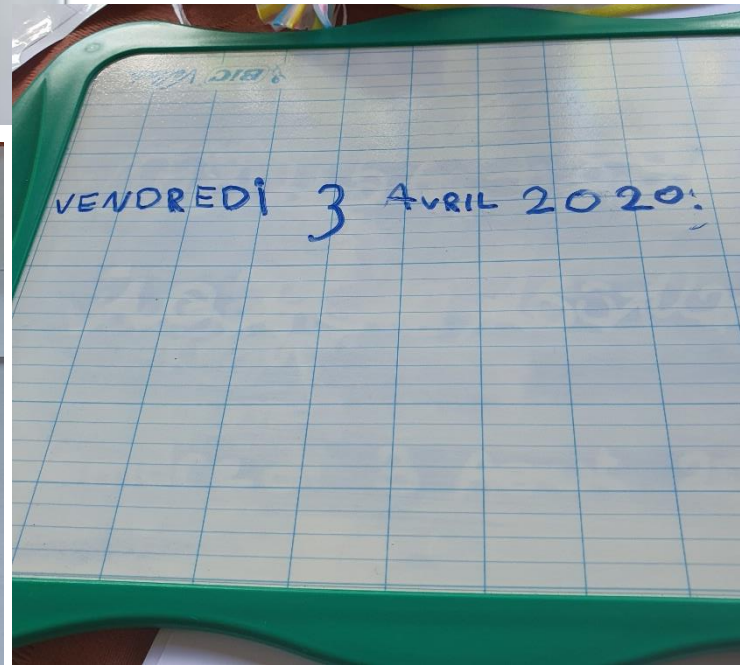 BIC Velleda
VENDREDI 3 AVRIL 2020: